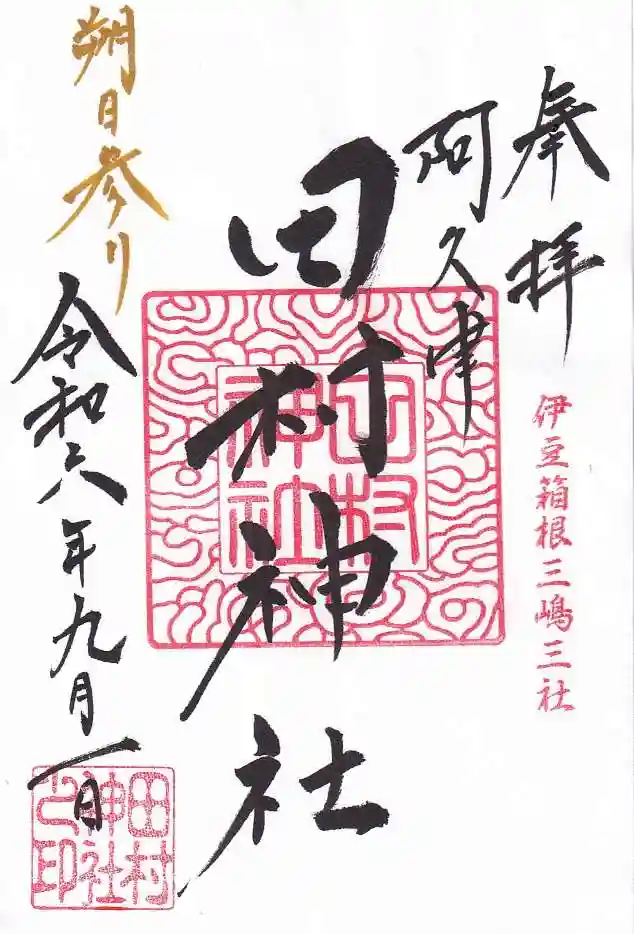 奉拝
伊豆箱根三嶋三社
阿久津
田村神社
田村神社
朔日参り
令和六年九月一日
田村神社之印